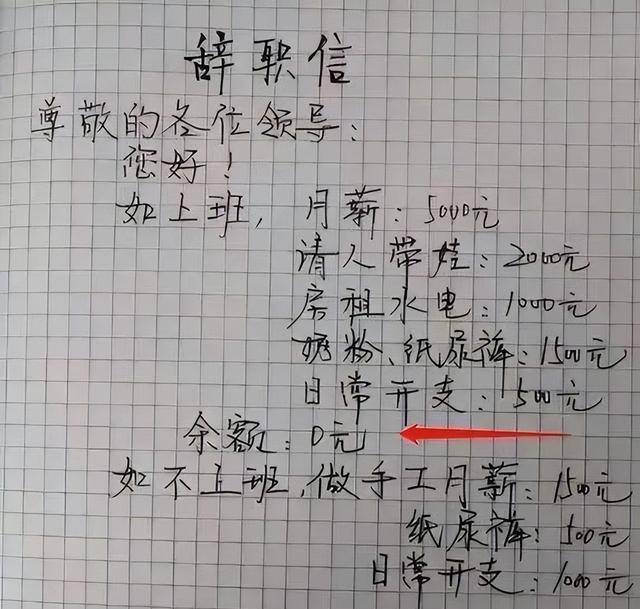 辞职信
尊敬的各位领导：
您好！
如上班，月薪：5000元
请人带娃：2000元
房租水电：1000元
奶粉、纸尿裤：1500元
日常开支：500元
余额：0元
如不上班，做手工月薪：1500元
纸尿裤：500元
日常开支：1000元